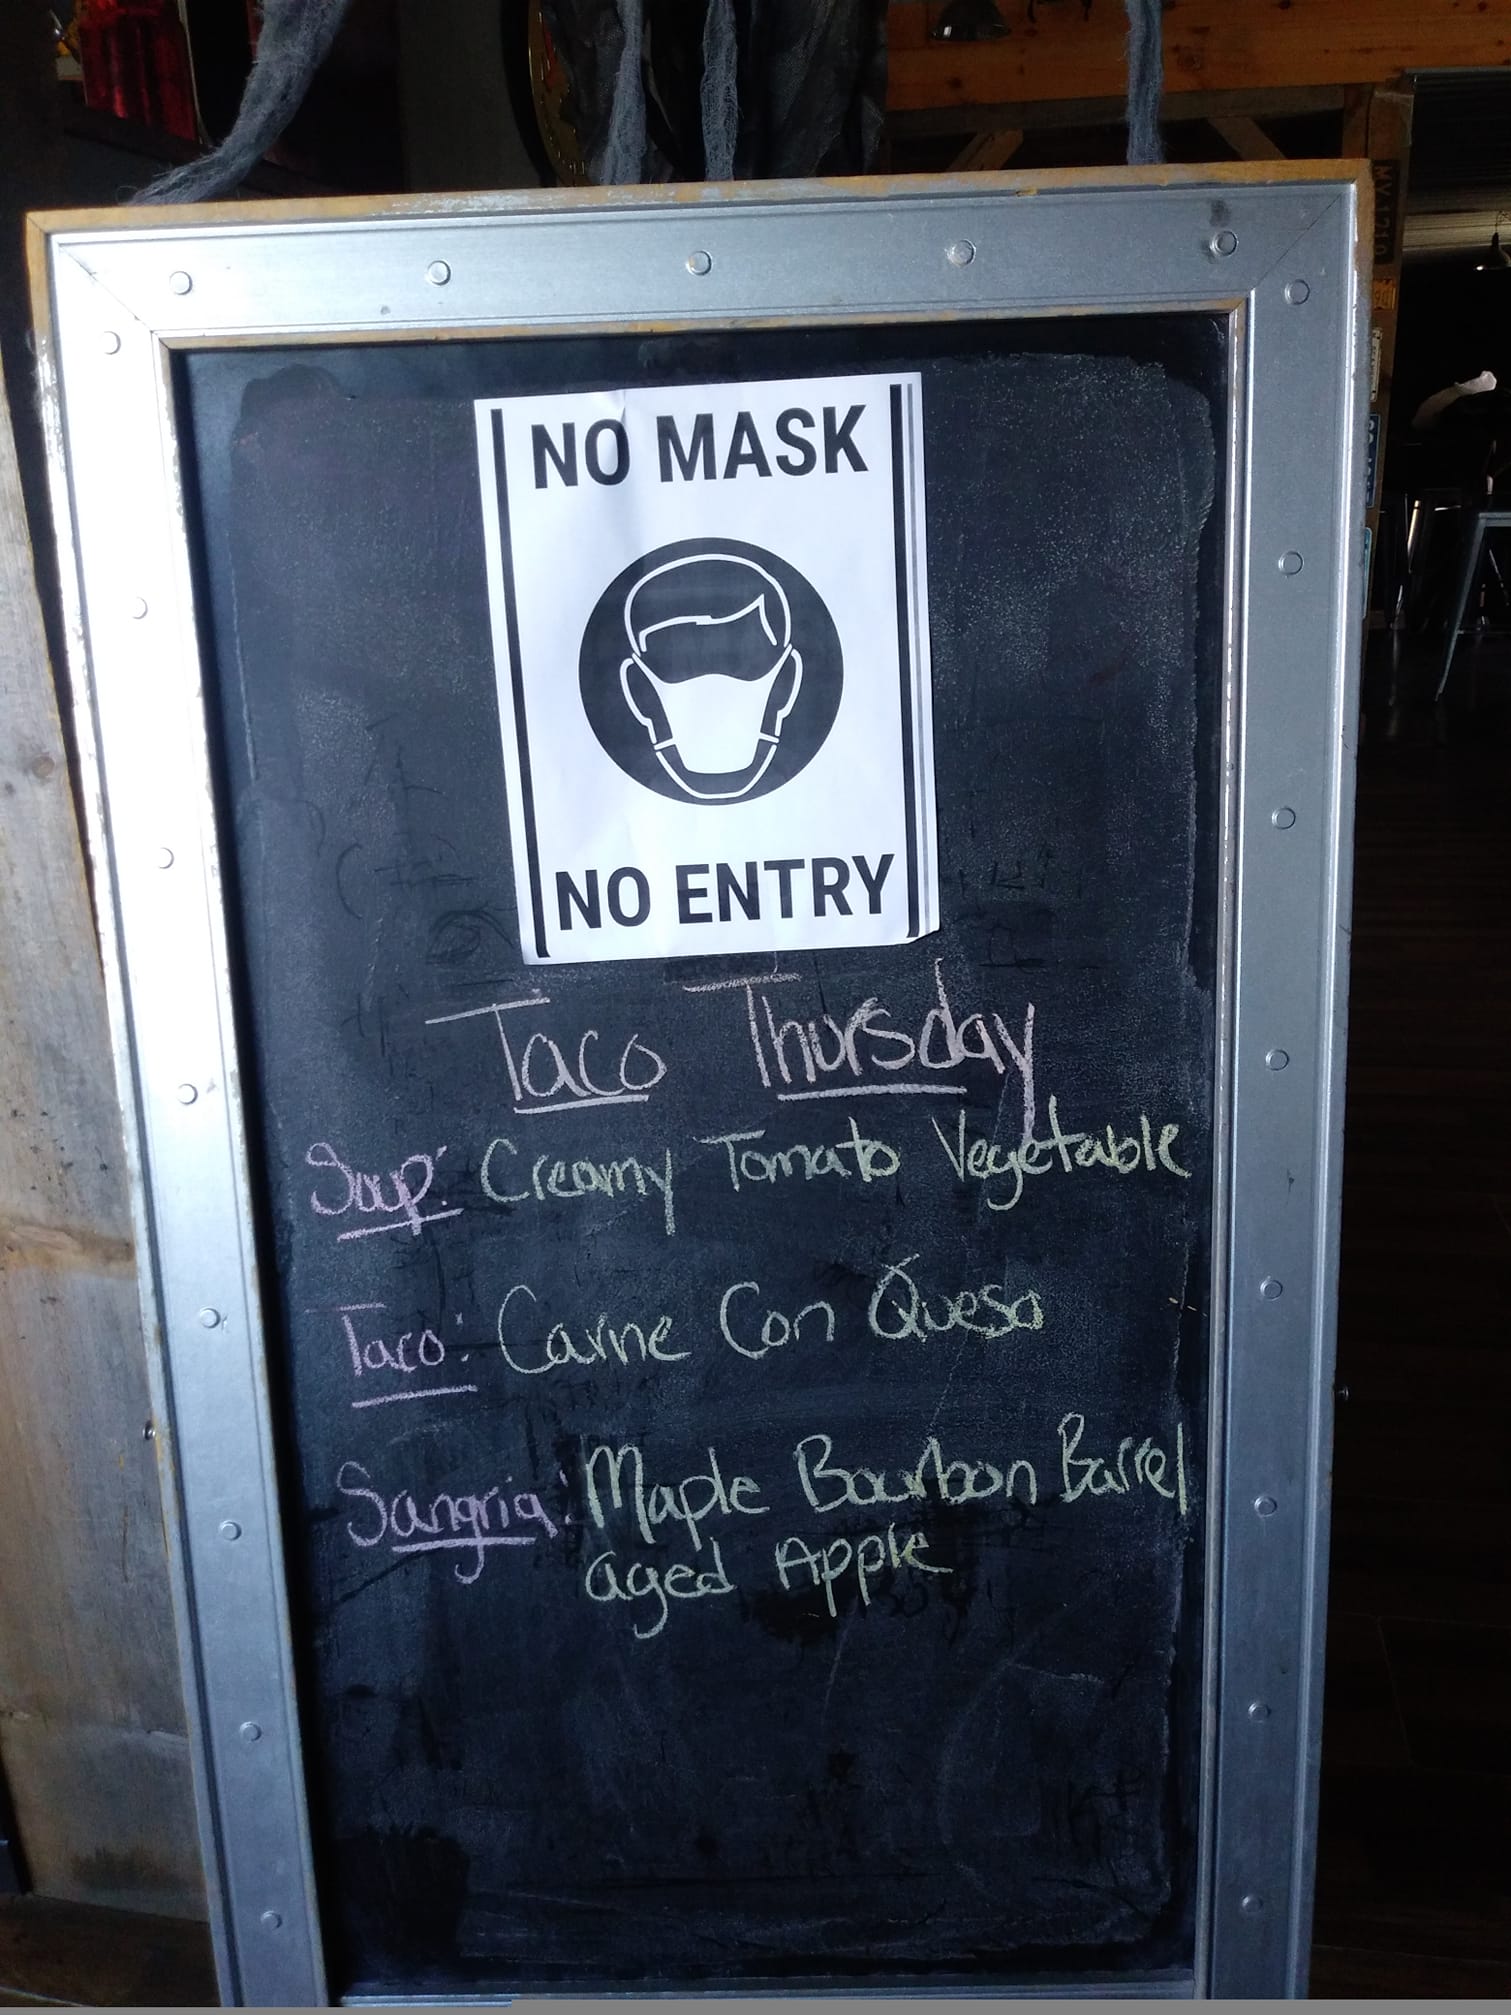 NO MASK
NO ENTRY
Taco Thursday
Soup: Creamy Tomato Vegetable
Taco: Carne Con Queso
Sangria: Maple Bourbon Barrel
aged Apple